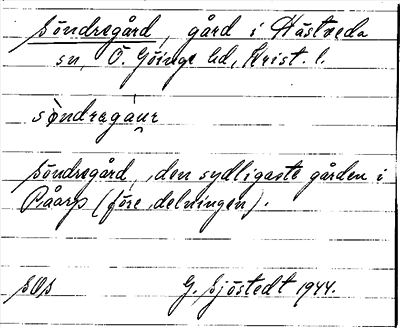 Söndregård, gård i Hästveda
sn, Ö. Göinge hd, Krist. l.
sö̀ndregáu̯r
Söndregård, „den sydligaste gården i
Råarp (före delningen).
SOS G. Sjöstedt 1944.